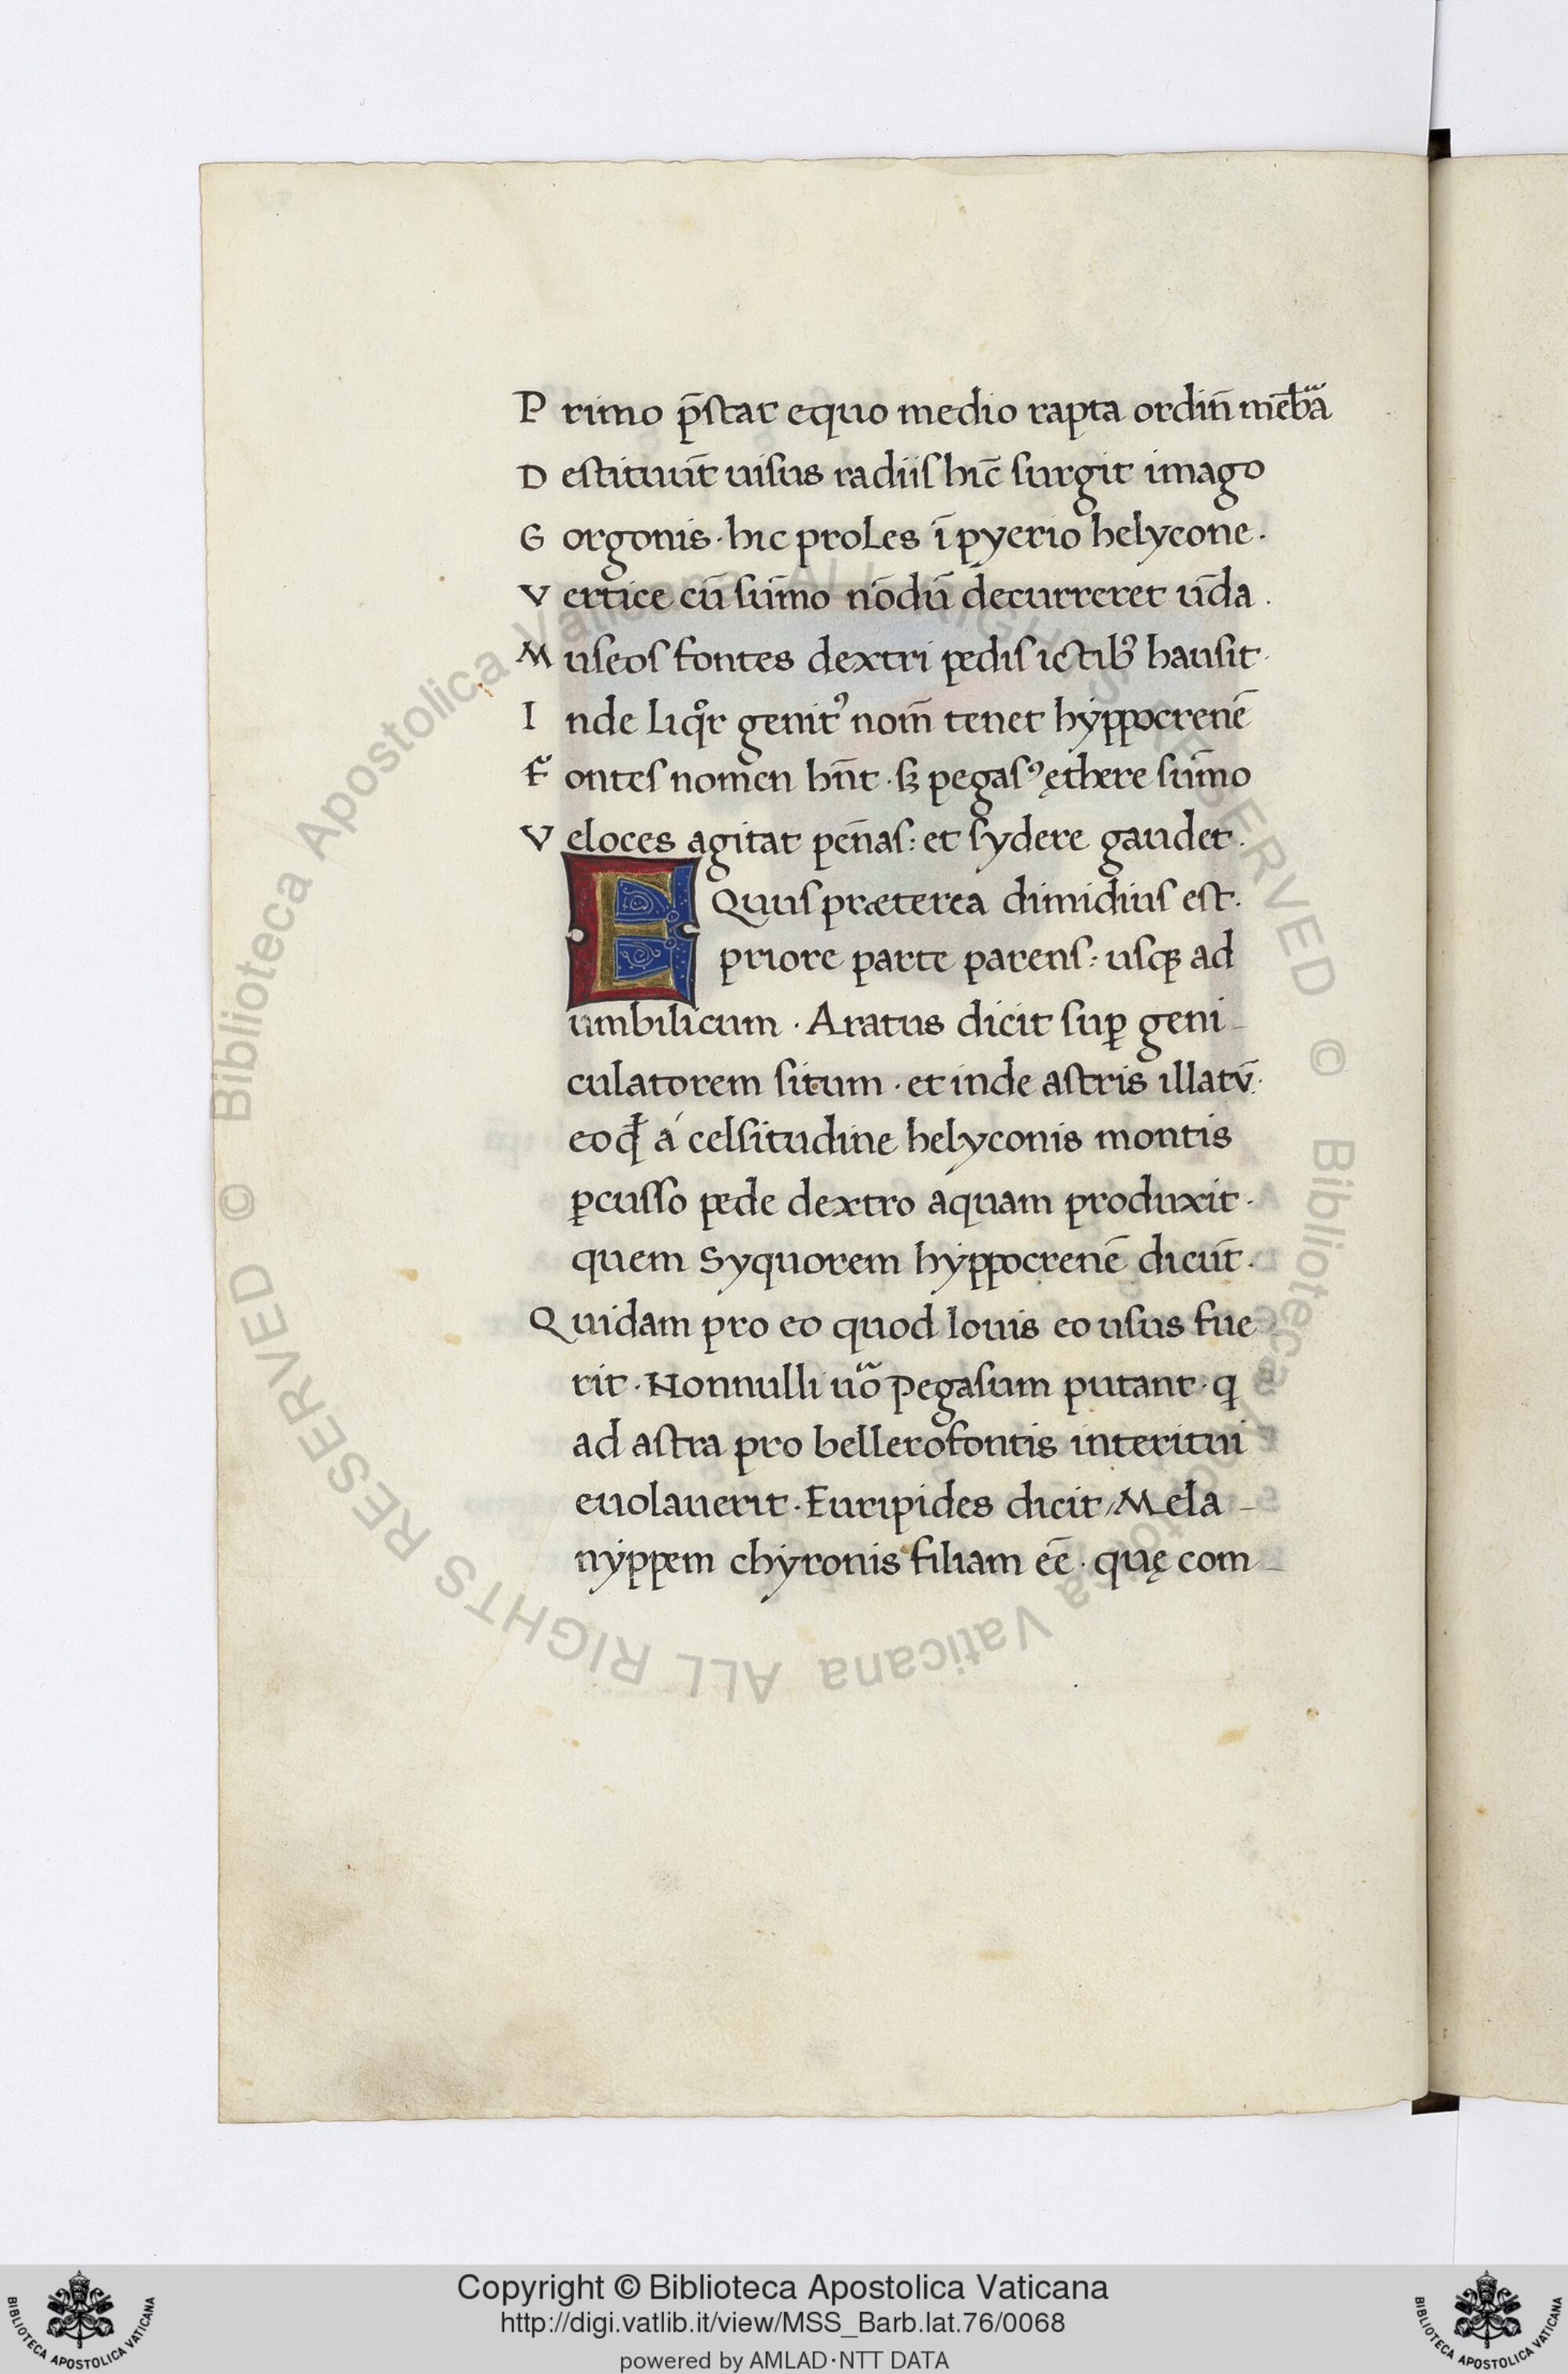 P rimo p̄stat equo medio rapta ordin̄ mēbᷓa
D estituūt uisus radiis hīc surgit imago
G orgonis · hic proles ī pyerio helycone ·
V ertice cū sūmo nōdū decurreret ūda .
M useos fontes dextri pedis ictibꝰ hausit ·
I nde liqͦr genitꝰ nom̄ tenet hyppocrenē
F ontes nomen hn̄t · sꝫ pegasꝰ ęthere sūmo
V eloces agitat pen̄as : et sydere gaudet ·
E Quus præterea dimidius est ·
priore parte parens : usqꝫ ad
umbilicum · Aratus dicit suꝑ geni-
culatorem situm · et inde astris illatū ·
eo qđ á celsitudine helyconis montis
ꝑcusso pede dextro aquam produxit ·
quem Syquorem hyppocrenē dicūt ·
Quidam pro eo quod Iouis eo usus fue
rit · Nonnulli uᷓo pegasum putant · ꝗ
ad astra pro bellerofontis interitui
euolauerit · Euripides dicit, Mela-
nyppem chyronis filiam eē · quę com-
© Biblioteca Apostolica Vaticana ALL RIGHTS RESERVED © Biblioteca Apostolica Vaticana ALL RIGHTS RESERVED
BIBLIOTECA APOSTOLICA VATICANA
Copyright © Biblioteca Apostolica Vaticana
http://digi.vatlib.it/view/MSS_Barb.lat.76/0068
powered by AMLAD·NTT DATA
BIBLIOTECA APOSTOLICA VATICANA